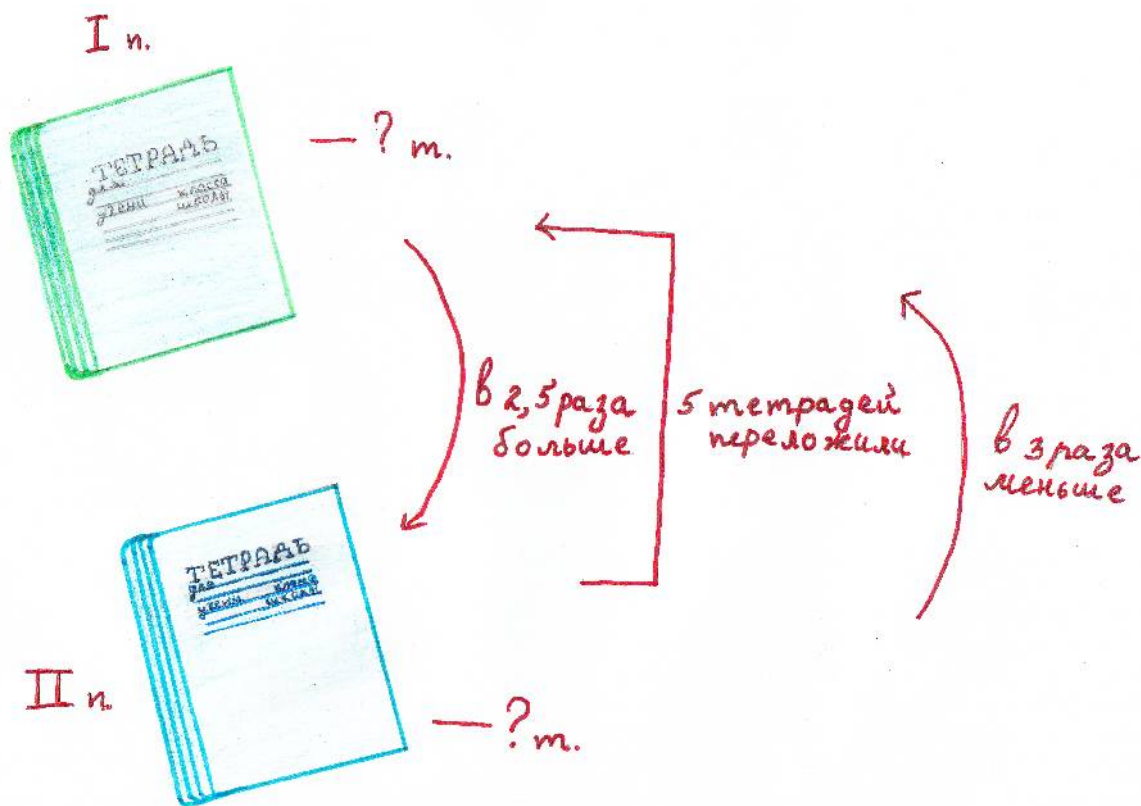 I п.
ТЕТРАДЬ
для
учени класса
школы
— ? т.
в 2,5 раза
больше
5 тетрадей
переложили
в 3 раза
меньше
ТЕТРАДЬ
для
учени
школы
II п.
— ? т.